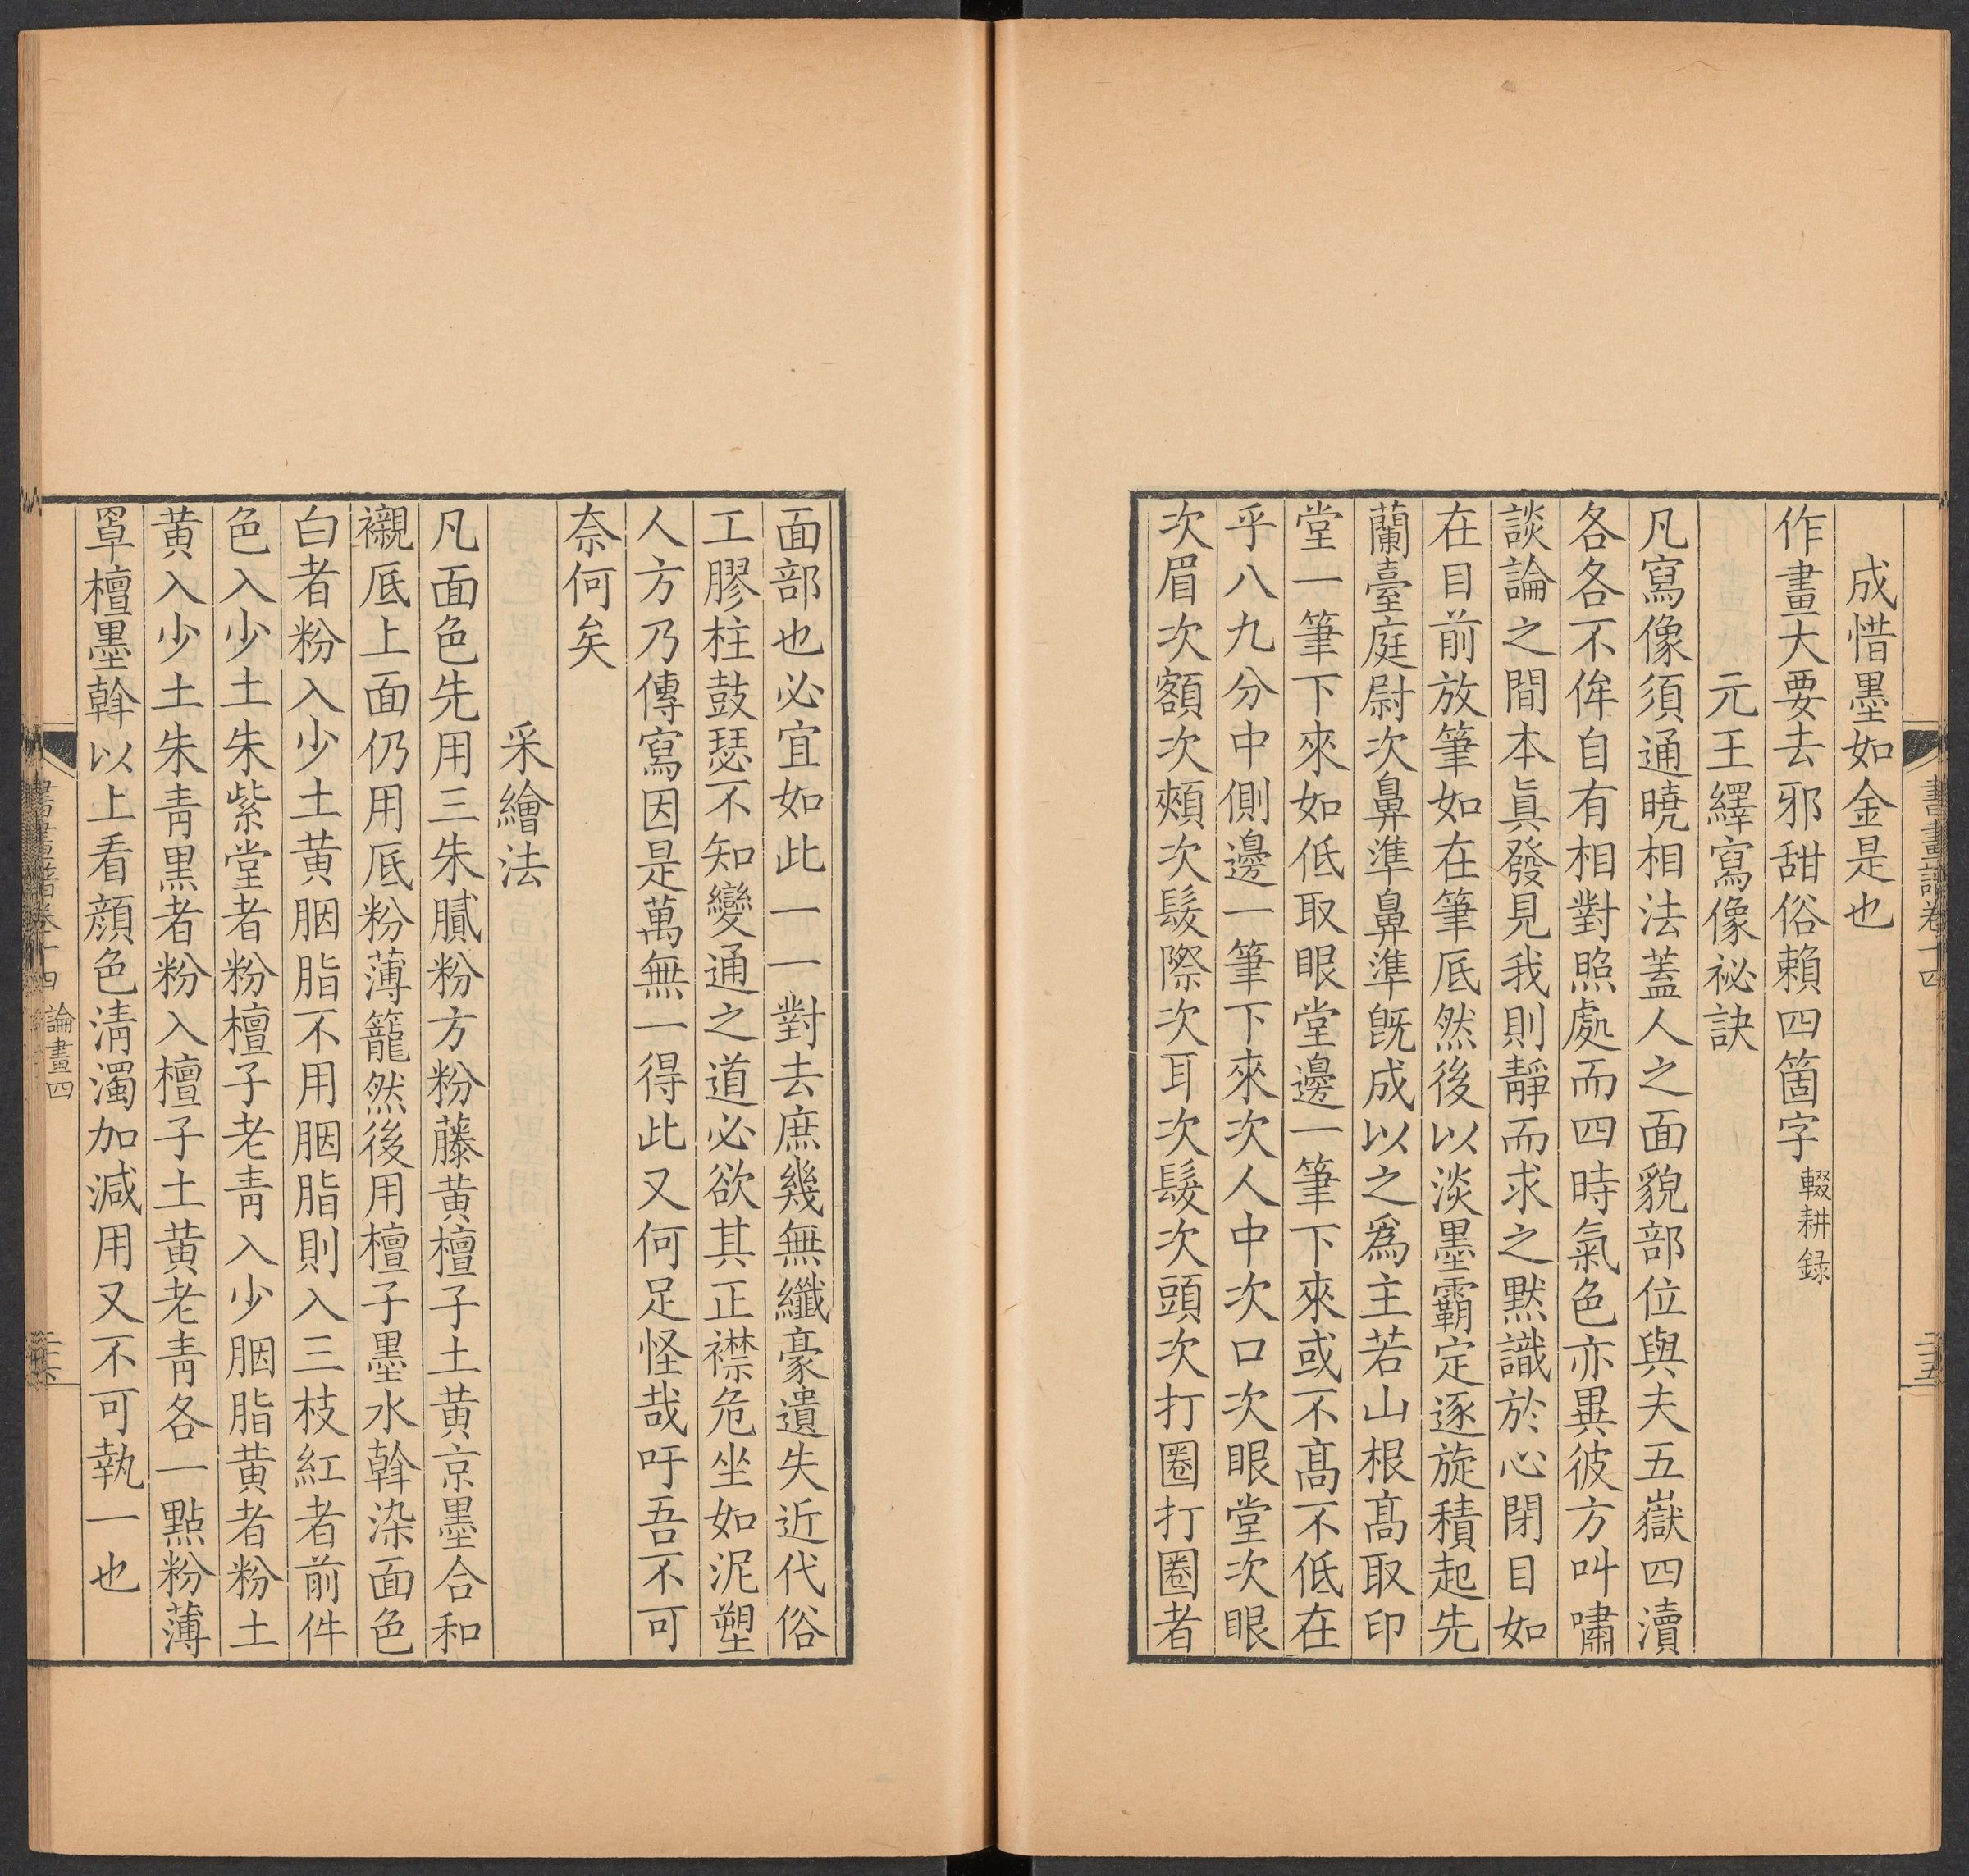 書畫譜卷十四
二十五
成惜墨如金是也
作畫大要去邪甜俗賴四箇字輟耕録
元王繹寫像祕訣
凡寫像須通曉相法蓋人之面貌部位與夫五嶽四瀆
各各不侔自有相對照處而四時氣色亦異彼方叫嘯
談論之間本眞發見我則靜而求之默識於心閉目如
在目前放筆如在筆底然後以淡墨霸定逐旋積起先
蘭臺庭尉次鼻準鼻準旣成以之爲主若山根髙取印
堂一筆下來如低取眼堂邊一筆下來或不髙不低在
乎八九分中側邊一筆下來次人中次口次眼堂次眼
次眉次額次頰次髮際次耳次髮次頭次打圈打圈者
面部也必宜如此一一對去庶幾無纖豪遺失近代俗
工膠柱鼓瑟不知變通之道必欲其正襟危坐如泥塑
人方乃傳寫因是萬無一得此又何足怪哉吁吾不可
奈何矣
采繪法
凡面色先用三朱膩粉方粉藤黃檀子土黃京墨合和
襯底上面仍用底粉薄籠然後用檀子墨水斡染面色
白者粉入少土黃胭脂不用胭脂則入三枝紅者前件
色入少土朱紫堂者粉檀子老靑入少胭脂黃者粉土
黃入少土朱靑黑者粉入檀子土黃老靑各一點粉薄
罩檀墨斡以上看顔色淸濁加減用又不可執一也
書畫譜卷十四 論畫四